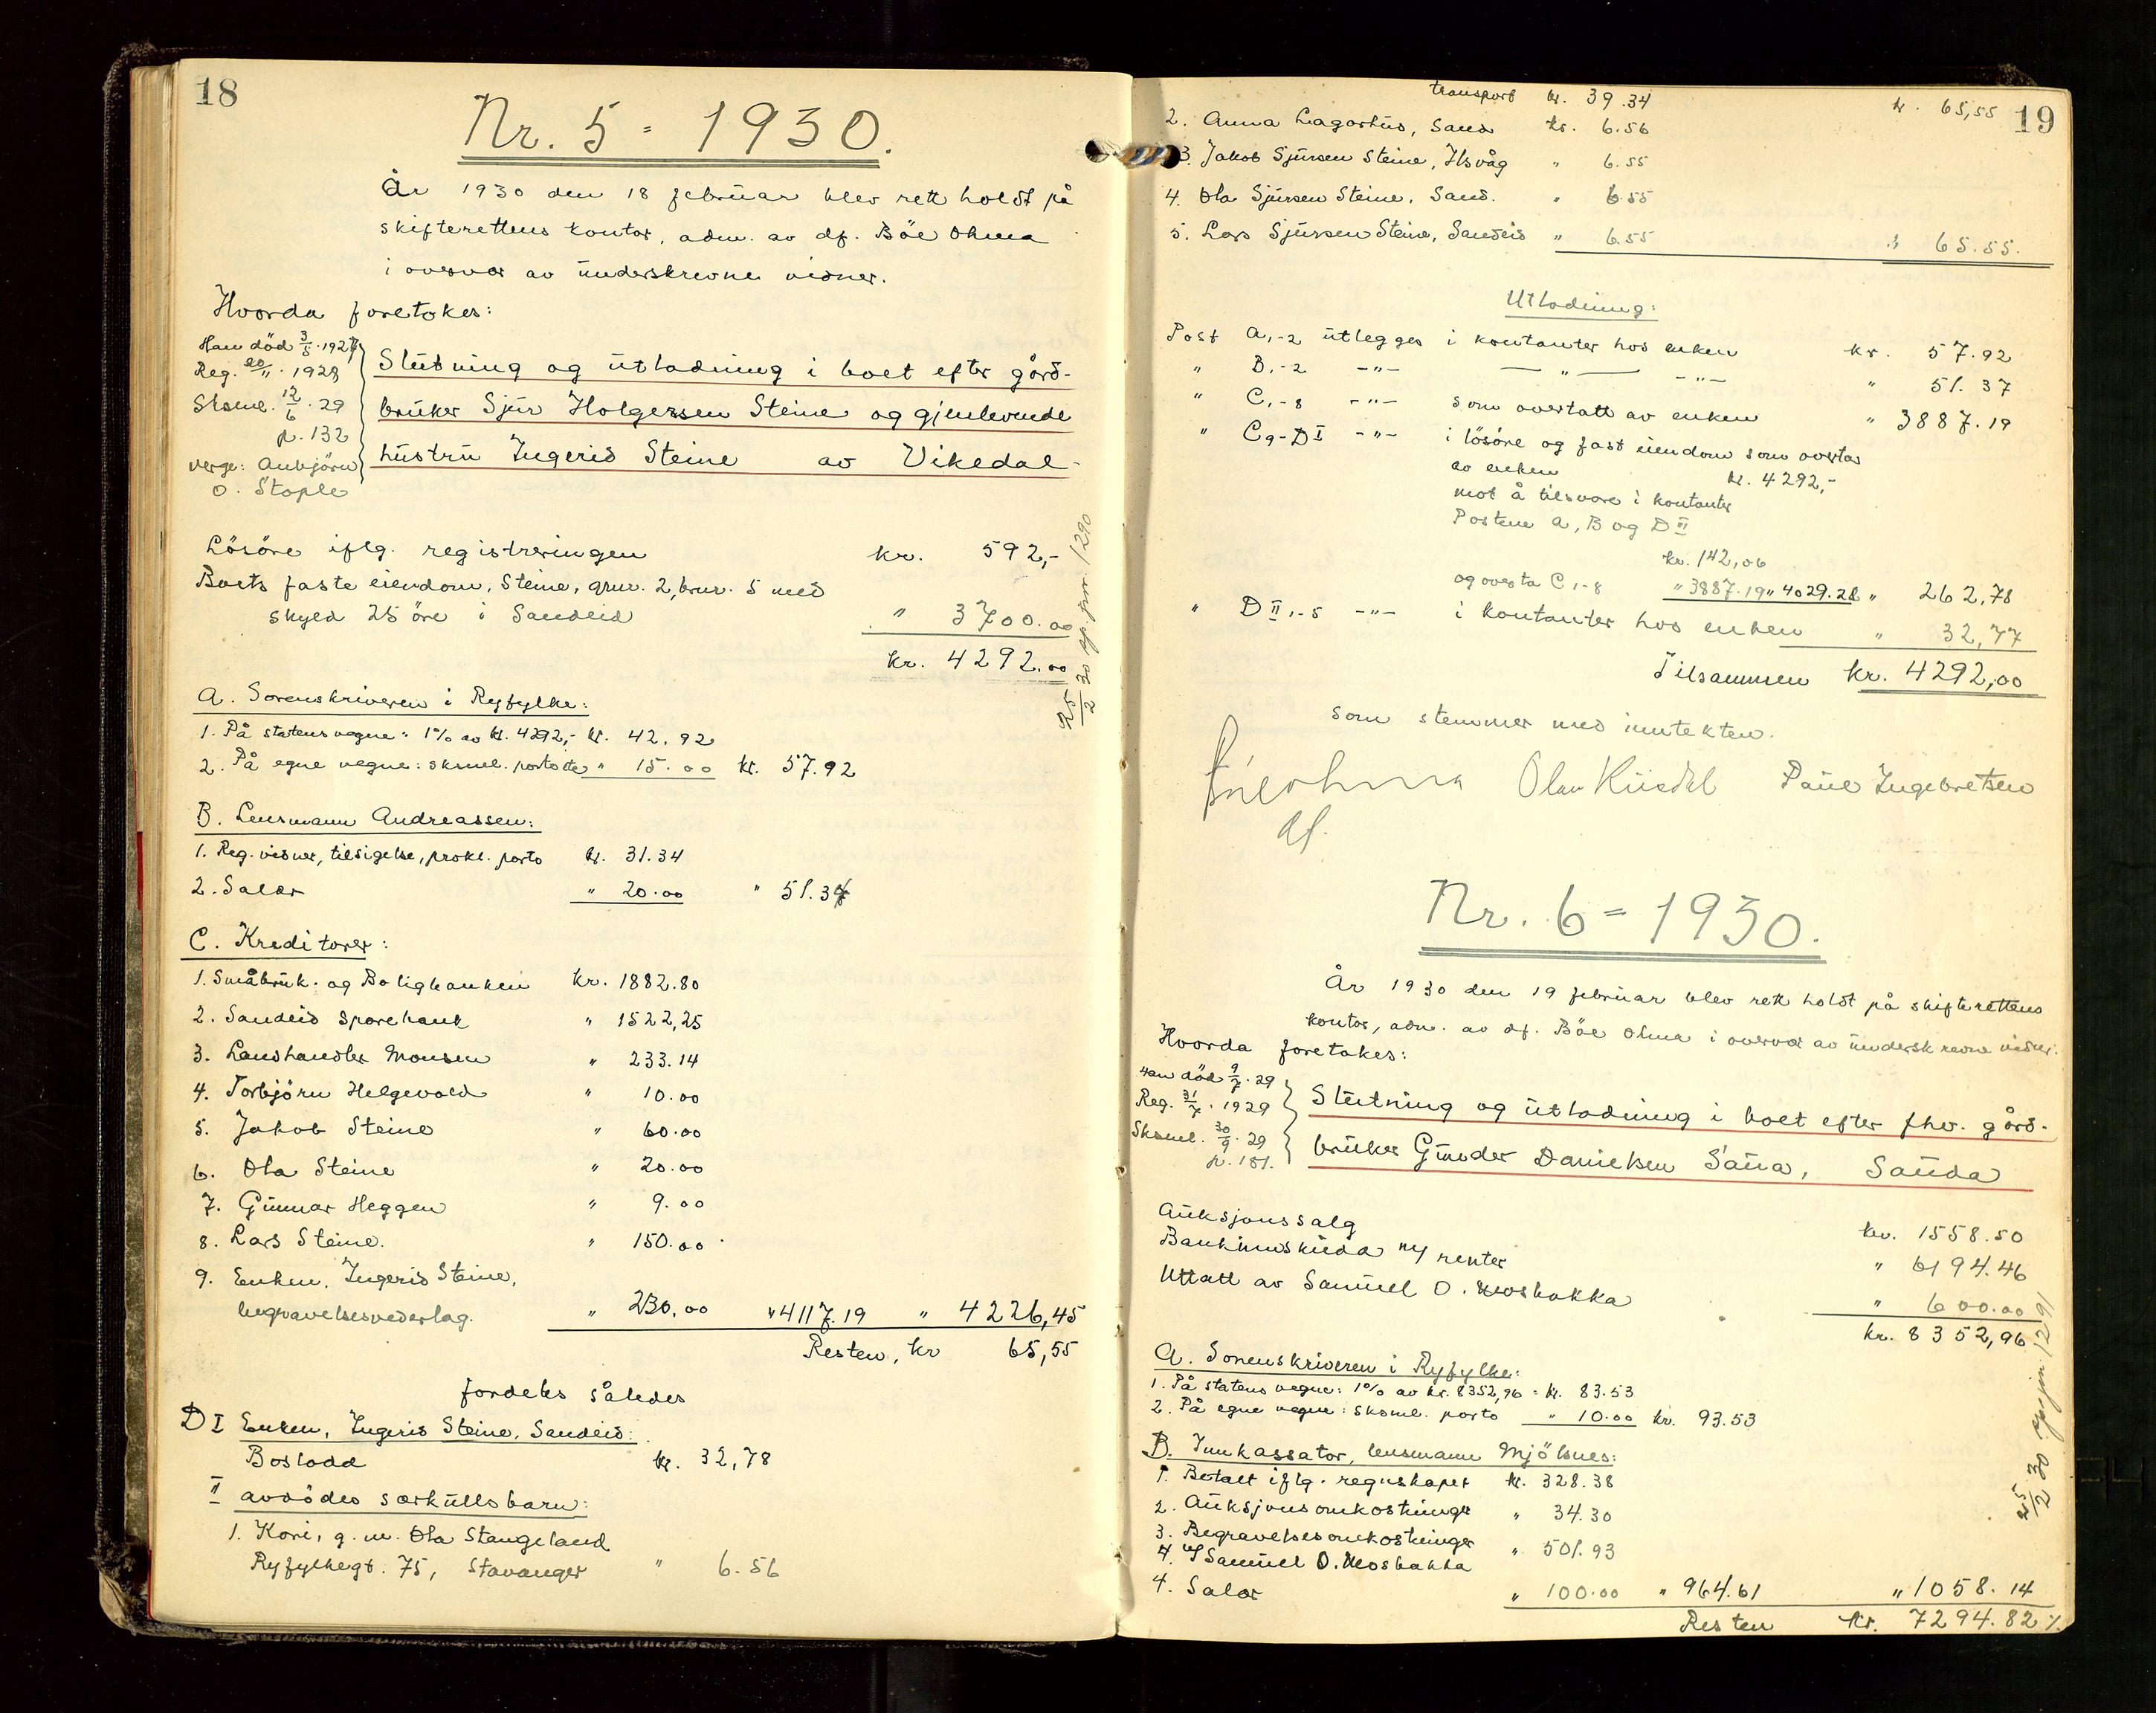 18
Nr. 5 = 1930.
År 1930 den 18 februar blev rett holdt på
skifterettens kontor, adm. av df. Böe Ohma
i overvær av underskrevne vidner.
Hvorda foretokes:
Han död 3/5. 1927
Reg. 20/11. 1928
Sksml. 12/6. 29
p. 132
verge: Anbjörn
O. Stople
Slutning og utlodning i boet efter gård-
bruker Sjur Holgersen Steine og gjenlevende
hustru Ingerid Steine av Vikedal
Lösöre iflg. registreringen kr. 592,-
Boets faste eiendom, Steine, gnr. 2, bnr. 5 med
skyld 25 öre i Sandeid " 3700.00
kr. 4292.00
25/2 30 gp. jnr. 1290
A. Sorenskriveren i Ryfylke:
1. På statens vegne: 1% av kr. 4292,- kr. 42.92
2. På egne vegne: sksml. porto etc " 15.00 kr. 57.92
B. Lensmann Andreassen:
1. Reg. vidner, tilsigelse, prokl. porto kr. 31.34
2. Salær " 20.00 " 51.34
C. Kreditorer:
1. Småbruk- og Boligbanken kr. 1882.80
2. Sandeid Sparebank " 1522,25
3. Landhandler Monsen " 233.14
4. Torbjörn Helgevold " 10.00
5. Jakob Steine " 60.00
6. Ola Steine " 20.00
7. Gunnar Heggen " 9.00
8. Lars Steine. " 150.00
9. Enken, Ingerid Steine,
begravelsesvederlag. " 230.00 " 4117.19 " 4226,45
Resten, kr 65,55
fordeles således
D I Enken, Ingerid Steine, Sandeid:
Boslodd kr. 32,78
II avdödes særkullsbarn:
1. Kari, g. m. Ola Stangeland
Ryfylkegt. 75, Stavanger " 6.56
19
transport kr. 39.34 kr. 65,55
2. Anna Lagarhus, Sand kr. 6.56
3. Jakob Sjursen Steine, Ilsvåg " 6.55
4. Ola Sjursen Steine, Sand. " 6.55
5. Lars Sjursen Steine, Sandeid " 6.55 " 65.55.
Utlodning:
Post A,-2 utlegges i kontanter hos enken kr. 57.92
" B,-2 -"- — " — -"- " 51.37
" C,-8 -"- som overtatt av enken " 3887.19
" C9-DI -"- i lösöre og fast eiendom som overtas
av enken kr. 4292,-
mot å tilsvare i kontanter
Postene A, B og D II
kr. 142,06
og overta C 1-8 " 3887.19 " 4029.28 " 262,78
" D II 1-5 -"- i kontanter hos enken " 32,77
Tilsammen kr. 4292,00
som stemmer med inntekten.
Böe Ohma Olav Kusdal Paul Ingebretsen
df.
Nr. 6 = 1930.
År 1930 den 19 februar blev rett holdt på skifterettens
kontor, adm. av df. Böe Ohma i overvær av underskrevne vidner.
Hvorda foretokes:
Han död 9/7. 29
Reg. 31/7. 1929
Sksml. 30/9. 29
p. 151.
Slutning og utlodning i boet efter fhv. gård-
bruker Gunder Danielsen Saua, Sauda
Auksjonssalg kr. 1558.50
Bankinnskudd m/ renter " 6194.46
Uttatt av Samuel O. Moshakka " 600.00
kr. 8352,96
25/2 30 gp. jnr. 1291
A. Sorenskriveren i Ryfylke:
1. På statens vegne: 1% av kr. 8352,96 = kr. 83.53
2. På egne vegne: sksml. porto " 10.00 kr. 93.53
B. Innkassator, lensmann Mjölsnes:
1. Betalt iflg. regnskapet kr. 328.38
2. Auksjonsomkostninger " 34.30
3. Begravelsesomkostninger
4. v/ Samuel O. Moshakka " 501.93
4. Salær " 100.00 " 964.61 " 1058.14
Resten kr. 7294.82 ./.